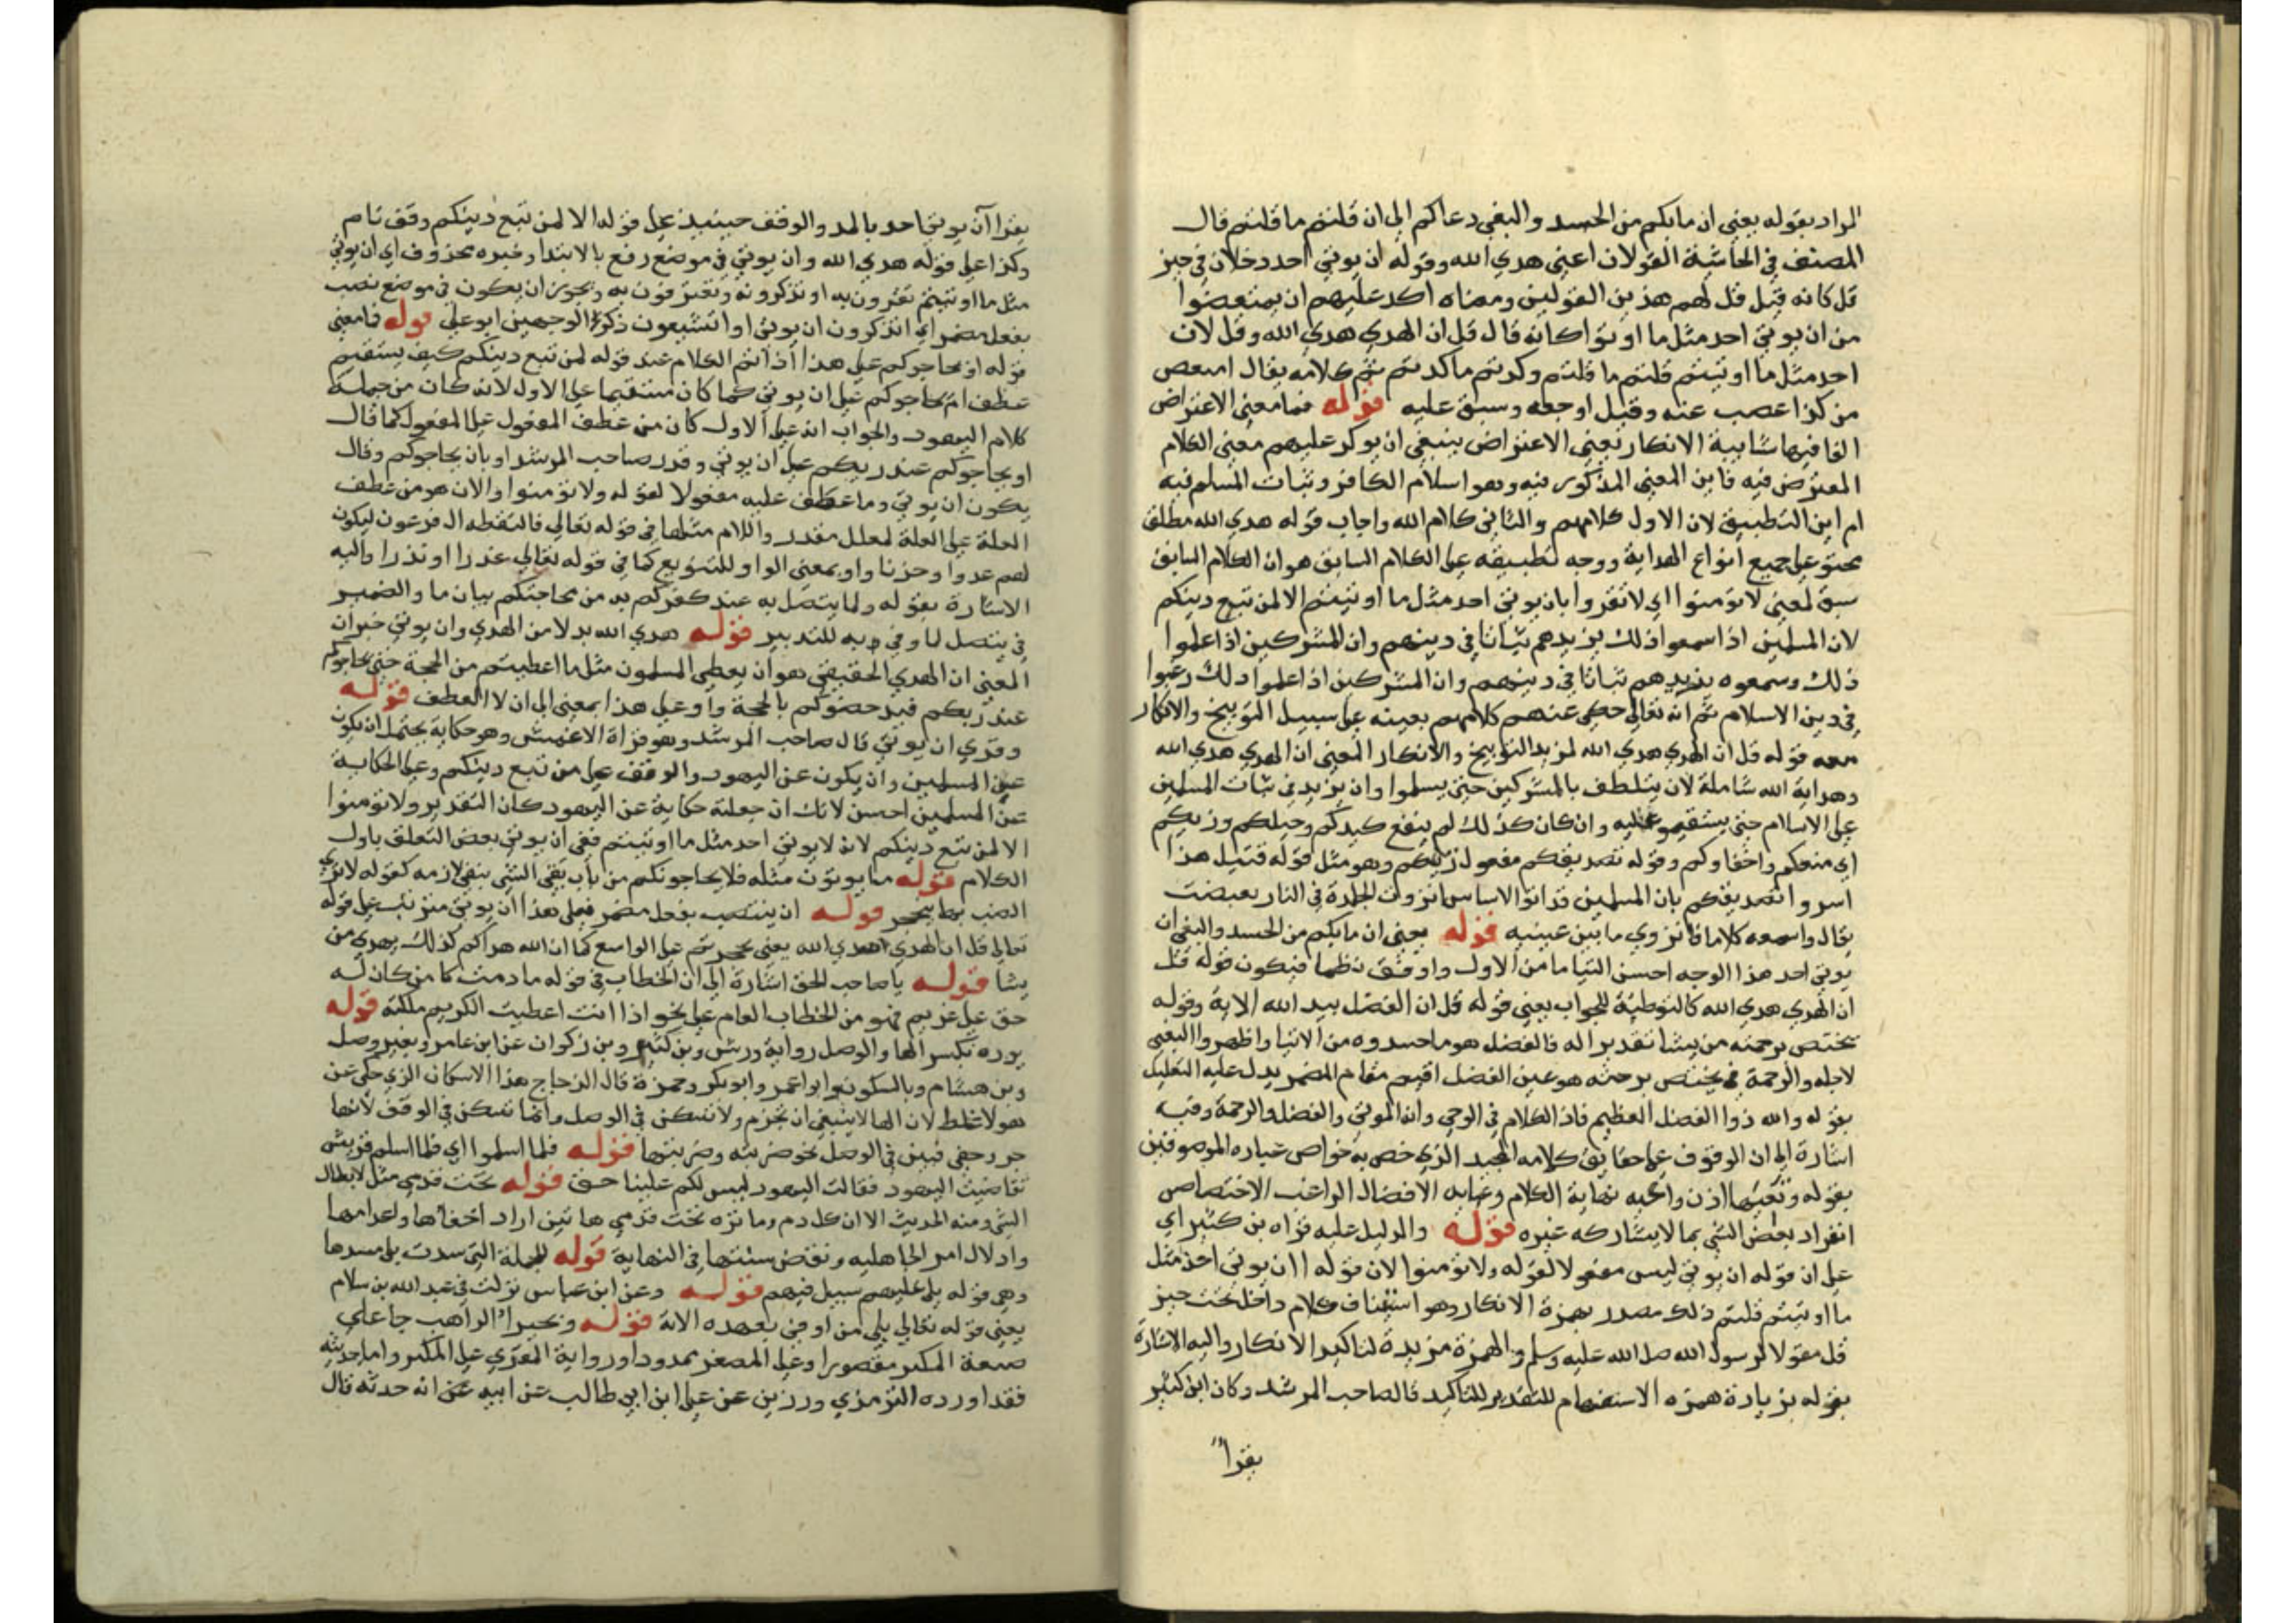 المراد بقوله يعني ان مابكم من الحسد والبغي دعاكم الى ان قلتم ما قلتم قال
المصنف في الحاشية القولان اعني هدي الله وقوله ان يوتي احد دخلان في حيز
قل كانه قيل قل لهم هذين القولين ومعناه اكد عليهم ان يمتعضوا
من ان يوتي احد مثل ما اوتوا كانه قال قل ان الهدي هدي الله وقل لان
احد مثل ما اوتيتم قلتم ما قلتم وكدتم ما كدتم تم كلامه يقال امتعص
من كذا غصب عنه وقيل اوجعه وسبق عليه قوله فما معني الاعتراض
الفا فيها شايبة الانكار يعني الاعتراض ينبغي ان يوكد عليهم معني الكلام
المعترض فيه فاين المعني المذكور فيه وهو اسلام الكافر وثبات المسلم فيه
ام اين التطبيق لان الاول كلامهم والثاني كلام الله واجاب قوله هدي الله مطلق
محتو على جميع انواع الهداية ووجه تطبيقه على الكلام السابق هو ان الكلام السابق
سبق لمعني لا تومنوا اي لا تقروا بان يوتي احد مثل ما اوتيتم الا لمن تبع دينكم
لان المسلمين اذا سمعوا ذلك يزيدهم ثباتا في دينهم وان المشركين اذا علموا
ذلك وسمعوه يزيدهم ثباتا في دينهم وان المشركين اذا علموا ذلك رغبوا
في دين الاسلام ثم انه تعالى حكى عنهم كلامهم بعينه على سبيل التوبيخ والانكار
معه قوله قل ان الهدي هدي الله لمزيد التوبيخ والانكار المعني ان الهدي هدي الله
وهداية الله شاملة لان يتلطف بالمشركين حتي يسلموا وان يزيد في ثبات المسلمين
على الاسلام حتي يستقيموا عليه وان كان كذلك لم ينفع كيدكم وحيلكم وزيكم
اي منعكم واخفاوكم وقوله تصديقكم مفعول زيكم وهو مثل قوله قبيل هذا
اسروا تصديقكم بان المسلمين قد اتوا الاساس انزوت الجلدة في النار تقبضت
يقال واسمعه كلاما فانزوي ما بين عينيه قوله يعني ان ما بكم من الحسد والبغي ان
يوتي احد هذا الوجه احسن التياما من الاول واوفق نظما فيكون قوله قل
ان الهدي هدي الله كالتوطية للجواب يعني قوله قل ان الفضل بيد الله الاية وقوله
يختص برحمته من يشا تقديرا له فالفضل هو ما حسدوه من الاتيا واظهروا البغي
لاجله والرحمة في يختص برحمته هو عين الفضل اقيم مقام المضمر يدل عليه التعليل
بقوله والله ذوا الفضل العظيم فاذا الكلام في الوحي وانه الموتي والفضل والرحمة وفيه
اشارة الى ان الوقوف على حقايق كلامه المجيد الذي خص به خواص عباده الموصوفين
بقوله وتعيها اذن واعيه نهاية الكلام وغايه الافضال الراغب الاختصاص
انفراد بعض الشي بما لا يشاركه غيره قوله والدليل عليه قراه بن كثير اي
على ان قوله ان يوتي ليس مفعولا لقوله ولا تومنوا لان قوله اان يوتي احد مثل
ما اوتيتم قلتم ذلك مصدر بهمزة الانكار وهو استيناف كلام داخل تحت حيز
قل مقولا لرسول الله صلى الله عليه وسلم والهمزة مزيدة لتاكيد الانكار واليه الاشارة
بقوله بزيادة همزه الاستفهام للتقدير للتاكيد قال صاحب المرشد وكان ابن كثير
يقرا
يقرا آن يوتي احد بالمد والوقف حينيذ على قوله الا لمن تبع دينكم وقف تام
وكذا على قوله هدي الله وان يوتي في موضع رفع بالابتدا وخبره محذوف اي ان يوتي
مثل ما اوتيتم تقرون به او تذكرونه وتعترفون به ويجوز ان يكون في موضع نصب
بفعل مضمر اي اتذكرون ان يوتي او اتشيعون ذكر الوجهين ابو علي قوله فما معني
قوله او يحاجوكم على هذا اذا تم الكلام عند قوله لمن تبع دينكم كيف يستقيم
عطف ام يحاجوكم على ان يوتي كما كان مستقيما على الاول لانه كان من جملة
كلام اليهود والجواب انه على الاول كان من عطف المفعول على المفعول كما قال
او يحاجوكم عند ربكم على ان يوتي وقدر صاحب المرشد او بان يحاجوكم وقال
يكون ان يوتي وما عطف عليه مفعولا لقوله ولا تومنوا والان هو من عطف
العلة على العلة لمعلل مقدر واللام مثلها في قوله تعالى فالتقطه ال فرعون ليكون
لهم عدوا وحزنا واو بمعني الواو للتنويع كما في قوله تعالى عذرا او نذرا واليه
الاشارة بقوله ولما يتصل به عند كفركم به من محاجتكم بيان ما والضمير
في يتصل لما وفي به للتدبير قوله هدي الله بدلا من الهدي وان يوتي خبر ان
المعني ان الهدي الحقيقي هو ان يعطي المسلمون مثل ما اعطيتم من الحجة حتي يحاجوكم
عند ربكم فيدحضوكم بالحجة واو على هذا بمعني الى ان لا العطف قوله
وقري ان يوتي قال صاحب المرشد وهو قراة الاعمش وهو حكاية يحتمل ان يكون
عن المسلمين وان يكون عن اليهود والوقف على من تبع دينكم وعلى الحكاية
عن المسلمين احسن لانك ان جعلته حكاية عن اليهود كان التقدير ولا تومنوا
الا لمن تبع دينكم لانه لا يوتي احد مثل ما اوتيتم ففي ان يوتي بعض التعلق باول
الكلام قوله ما يوتون مثله فلا يحاجونكم من باب نفي الشي بنفي لازمه كقوله لا تري
الضب بها ينجحر قوله ان ينتصب بفعل مضمر فعلى هذا ان يوتي مترتب على قوله
تعالى قل ان الهدي هدي الله يعني على الواسع كما ان الله هداكم كذلك يهدي من
يشا قوله يا صاحب الحق اشارة الى ان الخطاب في قوله ما دمت كل من كان له
حق على غريم فهو من الخطاب العام على نحو اذا انت اعطيت الكريم ملكته قوله
يوده بكسر الها والوصل رواية ورش وبن كثير وبن ذكوان عن ابن عامر وبغير وصل
وبن هشام وبالسكون ابو عمر وابو بكر وحمزة قال الزجاج هذا الاسكان الذي حكي عن
هولا غلط لان الها لا ينبغي ان تجزم ولا تسكن في الوصل وانما تسكن في الوقف لانها
حرف خفي فبين في الوصل نحو ضربته وضربتها قوله فلما اسلموا اي فلما اسلم قريش
تقاضيت اليهود فقالت اليهود ليس لكم علينا حق قوله تحت قدمي مثل لابطال
الشي ومنه الحديث الا ان كل دم وماثره تحت قدمي هاتين اراد اخفاها واعدامها
واذلال امر الجاهليه ونقض سنتها في النهاية قوله للجملة التي سدت بلى مسدها
وهي قوله بلى عليهم سبيل فيهم قوله وعن ابن عباس نزلت في عبد الله بن سلام
يعني قوله تعالى بلى من اوفي بعهده الاية قوله وبحيرا الراهب جا على
صيغة المكبر مقصورا وعلى المصغر ممدودا ورواية المعزي على المكبر واما حديثه
فقد اورده الترمذي ورزين عن على ابن ابي طالب عن ابيه عن انه حدثه قال